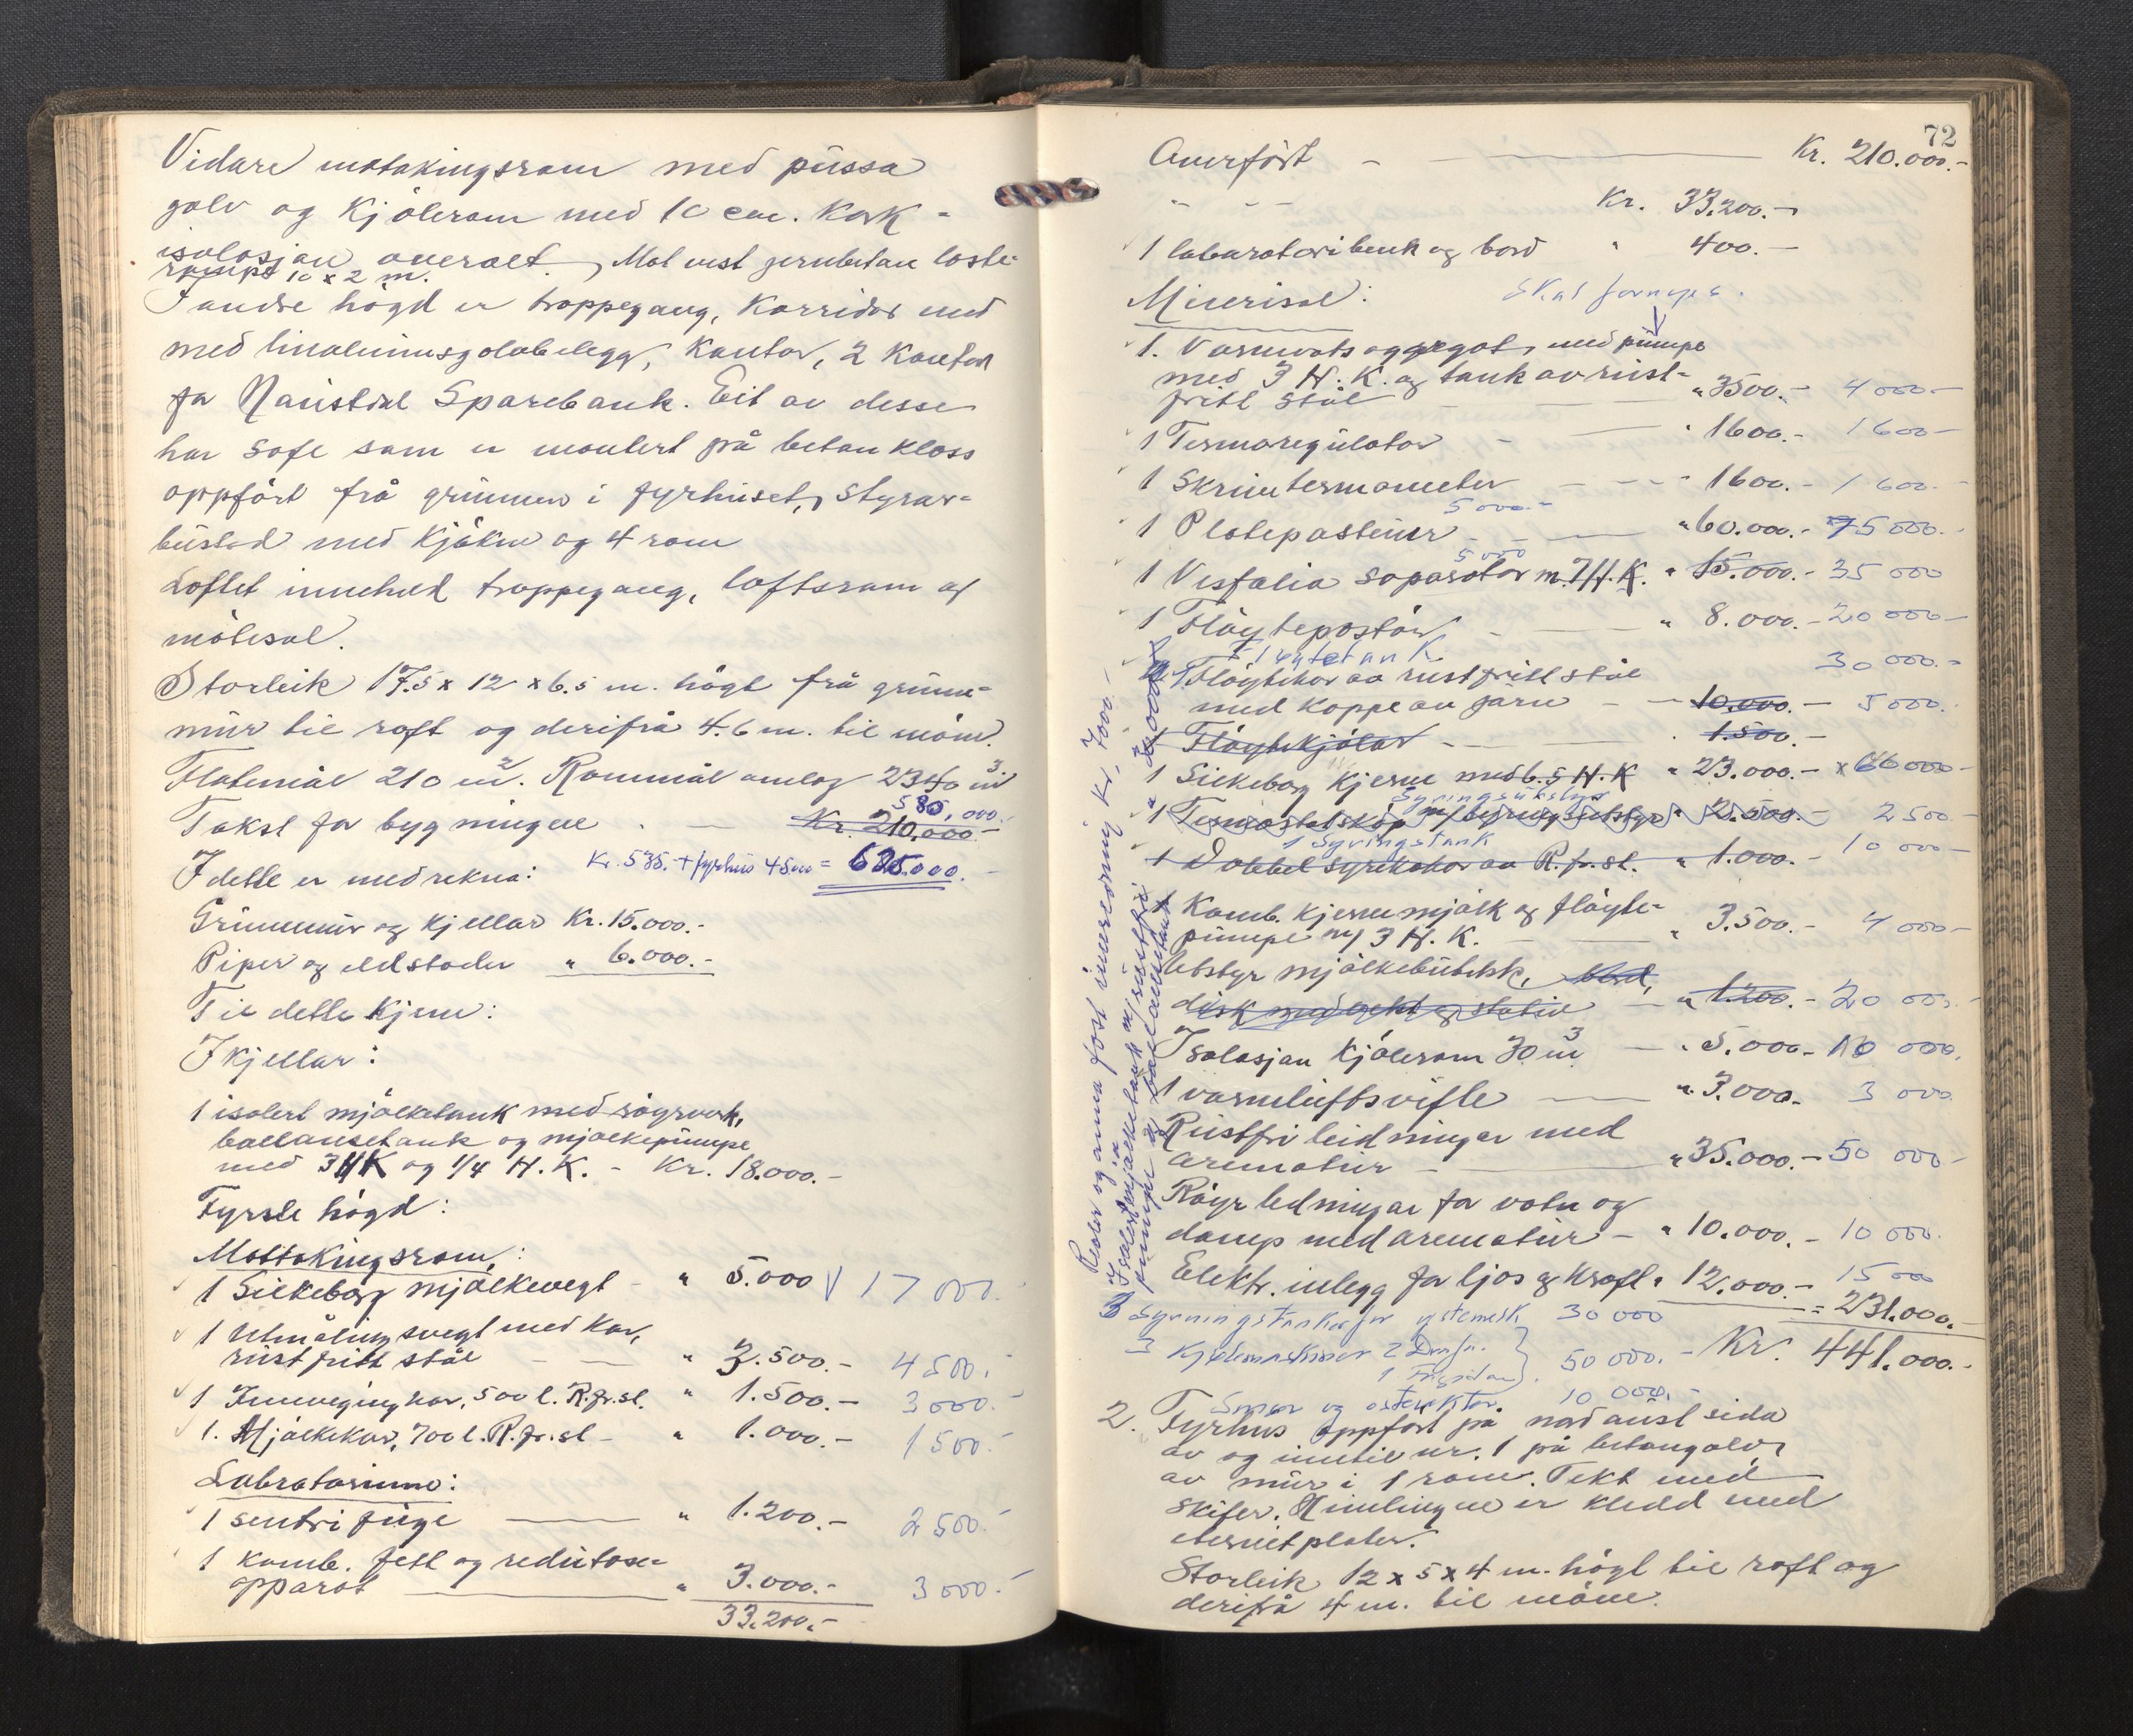 Vidare mottakingsrom med pussa
golv og kjölerom med 10 cm. kork-
isolasjon overalt. Mot vest jernbetong laste-
rampe 10 x 2 m.
I andre högd er trappegang, korridor med
med linoleumsgolvbelegg, kontor, 2 kontor
for Naustdal Sparebank. Eit av desse
har safe som er montert på betonkloss
oppfört frå grunnen i fyrhuset, styrar-
bustad med kjöken og 4 rom
Loftet inneheld trappegang, loftsrom og
mötesal.
Storleik 17.5 x 12 x 6.5 m. högt frå grunn-
mur til raft og derifrå 4.6 m. til möne.
Flatemål 210 m². Rommål omlag 2340 m³
585,000.-
Takst for bygningen - Kr. 210.000.-
Kr. 585.- + fyrhus 45000 = 635.000.-
I dette er medrekna:
Grunnmur og kjellar Kr. 15.000.-
Piper og eldstader " 6.000.-
Til dette kjem:
I kjellar:
1 isolert mjölketank med rögrverk,
ballansetank og mjölkepumpe
med 3 HK og 1/4 H.K. - Kr. 18.000.-
Fyrste högd:
Mottakingsrom:
1 Silkeborg mjölkevegt - " 5.000 17 000.-
1 Utmålingsvegt med kar,
rustfritt stål - " 3.500.- 4500.-
1 Innvegingkar, 500 l. R.fr.st. " 1.500.- 3000.-
1. Mjölkekar, 700 l. R.fr.st - " 1.000.- 1500.-
Labratorium:
1 sentrifuge - " 1.200.- 2500.-
1 komb. fett og redutase-
apparat - " 3.000.- 3000.-
33.200.-
72
Overfört - Kr. 210.000.-
" - - Kr. 33.200.-
1 laboratoribenk og bord " 400.-
Meierisal: Skal fornyes.
1. Varmvats aggregat, med pumpe
med 3 H.K. og tank av rust-
fritt stål - " 3500.- 4000.-
1 Termoregulator - " 1600.- 1600-
1 Skrivtermometer - - " 1600.- 1600.-
5000.-
1 Platepasteur - " 60.000.- 75000.-
5000
1 Vesfalia separator m. 7 H.K. " 15.000.- 35000
1 Flöytepastör - " 8.000.- 20000-
Flöytetank 30000.-
1 Flöytekar av rustfritt stål
med kappe av jarn - - 10.000.- 5000.-
1 Flöytekjölar - 1.500.-
1 Silkeborg kjerne med 6.5 H.K " 23.000.- x 66000-
Syringsutstyr
1 Termostatskåp m/syringsutstyr " 2.500.- 2500-
1 Syringstank
1 Dobbel syrekokar av R.fr.st. " 1.000.- 10000-
1 Komb. kjernemjölk og flöyte-
pumpe m/ 3 H.K. - " 3.500.- 4000-
Utstyr mjölkebutikk, bord,
disk med vekt og stativ - " 1.200.- 20000.-
Isolasjon kjölerom 30 m³ - " 5.000- 10000.
1 varmluftsvifte - " 3.000.- 3000.
Rustfri leidningar med
arematur - " 35.000.- 50000-
Röyr ledningar for vatn og
damp med arematur - " 10.000.- 10000.
Elektr. inlegg for ljos og kraft " 12.000.- 15000
= 231.000.-
Kr. 441.000.-
3 Syrningstankar for ystemelk 30000
3 Kjølemaskiner 2 Dram.
1 Frigidar 50000.-
Smør og osterektor 10000.-
Reolar og anna fast innreidning kr. 7000.-
1 Isolert mjølketank m/rustfri
pumpe og ballansetank
2. Fyrhus oppfört på nordaust sida
av og inntil nr. 1 på betongolv,
av mur i 1 rom. Tekt med
skifer. Himlingen er kledd med
eternitplater.
Storleik 12 x 5 x 4 m. högt til raft og
derifrå 4 m. til möne.